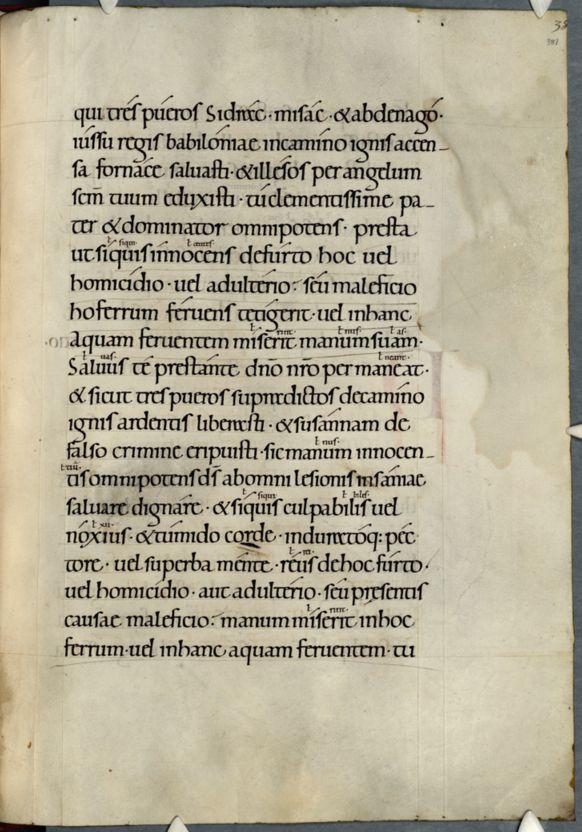 38
381
qui tres pueros Sidrac · misac · & abdenago ·
iussu regis babiloniae in camino ignis accen-
sa fornace saluasti · & illesos per angelum
sem̄ tuum eduxisti · tu clementissime pa-
ter & dominator omnipotens · presta
ł siqui ł centes
ut siquis innocens de furto hoc uel
homicidio · uel adulterio · seu maleficio
ho ferrum feruens tetigerit · uel in hanc
ł rint ł nus ł as
aquam feruentem miserit manum suam ·
ł uas ł neant
Saluus te prestante dn̄o nr̄o permaneat ·
& sicut tres pueros supradictos de camino
ignis ardentis liberasti · & susannam de
ł nus
falso crimine eripuisti · sic manum innocen-
ł tiū
tis omnipotens d̄s ab omni lesionis insaniae
ł siqui ł biles
saluare dignare · & siquis culpabilis uel
ł xii
noxius · & tumido corde · induratoq: pec
ł rei
tore · uel superba mente · reus de hoc furto ·
uel homicidio · aut adulterio · seu presentis
ł rint
causae maleficio · manum miserit in hoc
ferrum · uel in hanc aquam feruentem · tu